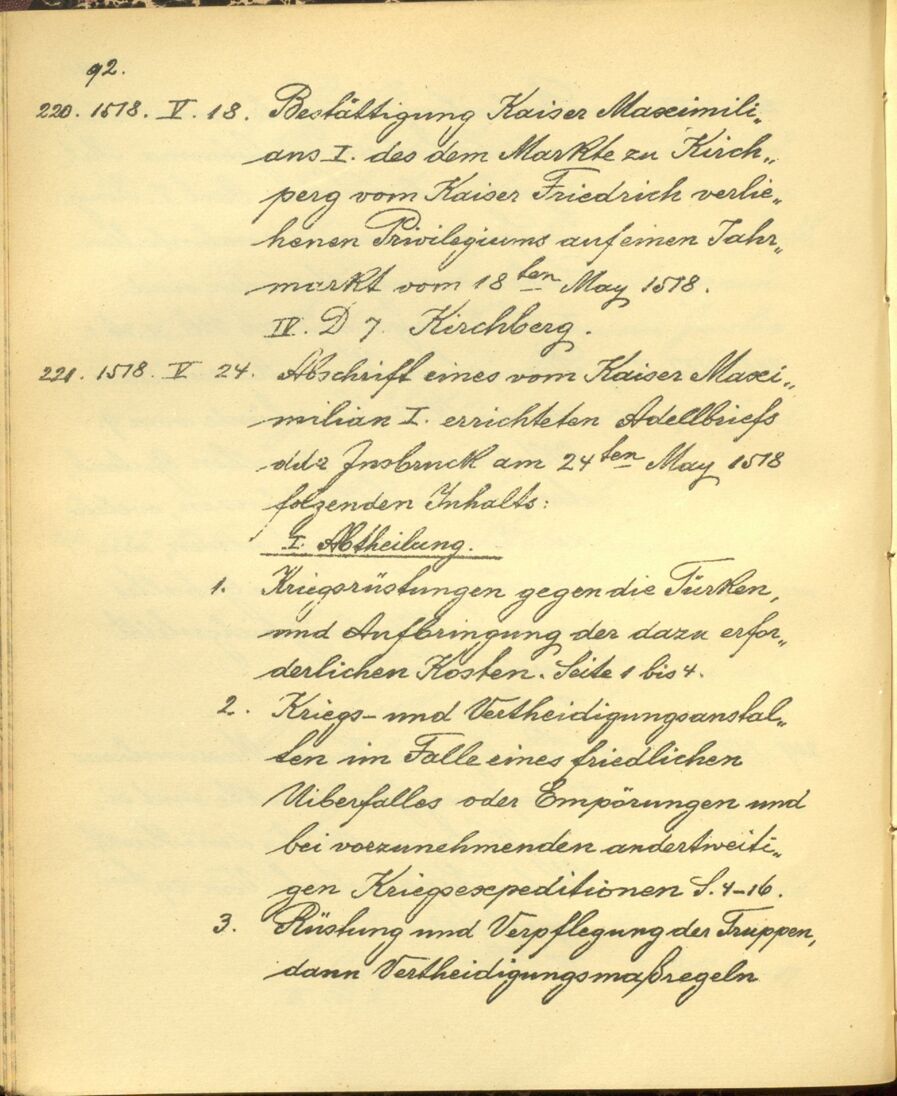 92.
220. 1518. V. 18. Bestättigung Kaiser Maximili„
ans I. des dem Markte zu Kirch„
perg vom Kaiser Friedrich verlie„
henen Privilegiums auf einen Jahr„
markt vom 18ten May 1518.
IV. D 7. Kirchberg.
221. 1518. V 24. Abschrift eines vom Kaiser Maxi„
milian I. errichteten Adellbriefs
dd2 Insbruck am 24ten May 1518
folgenden Inhalts:
I. Abtheilung.
1. Kriegsrüstungen gegen die Türken,
und Aufbringung der dazu erfor„
derlichen Kosten. Seite 1 bis 4.
2. Kriegs- und Vertheidigungsanstal„
ten im Falle eines friedlichen
Uiberfalles oder Empörungen und
bei vorzunehmenden andertweiti„
gen Kriegsexpeditionen S. 4-16.
3. Rüstung und Verpflegung der Truppen,
dann Vertheidigungsmaßregeln